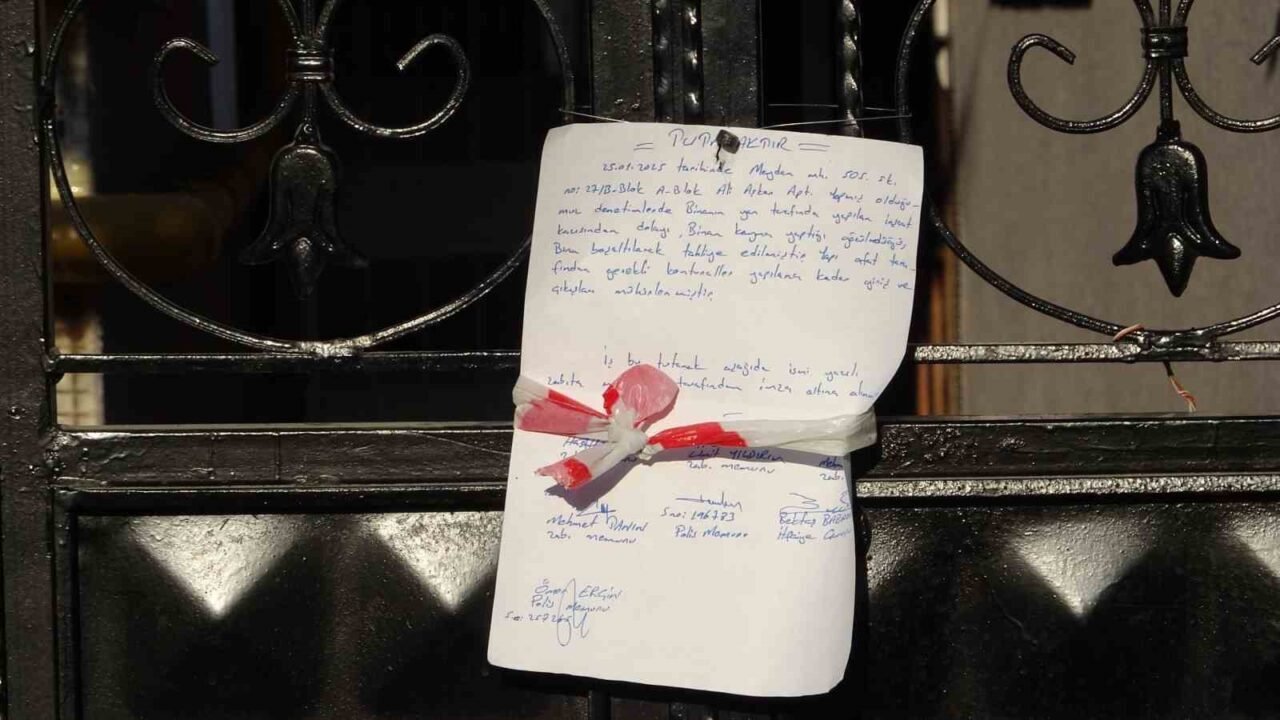 = TUTANAKTIR =
25.01.2025 tarihinde Meydan mh. 505. sk.
no: 27/B-Blok A-Blok Ali Apt. Yapmış olduğu-
muz denetimlerde Binanın yan tarafında yapılan inşaat
kazısından dolayı, Binan kayma yaptığı görüldüğüş,
Bina boşaltılarak tahliye edilmiştir Yapı afat tara-
fından gerekli kontroller yapılana kadar giriş ve
çıkışları mühürlenmiştir
İş bu tutanak aşağıda ismi yazılı
zabıta tarafından imza altına alın
YILDIRIM
zab. memuru
zab.
Mehmet
zab. memuru
Sno: 196783
Polis Memuru
Bektaş
İtfaiye
Ömer ERGİN
Polis memuru